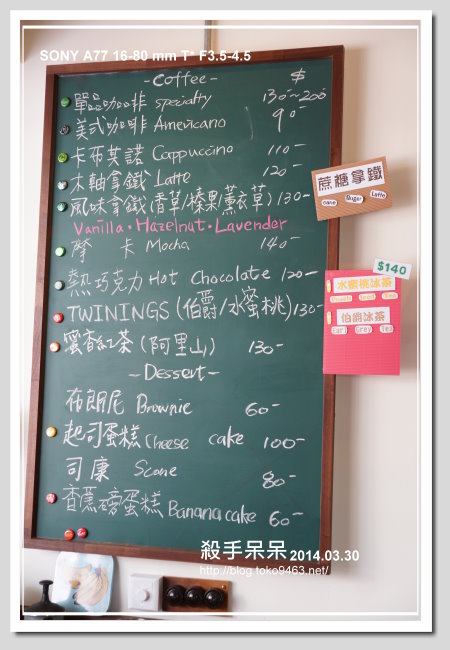 SONY A77 16-80 mm T* F3.5-4.5
-Coffee- $
單品咖啡 specialty 130~200
美式咖啡 Americano 90-
卡布其諾 Cappuccino 110-
木軸拿鐵 Latte 120-
風味拿鐵(香草/榛果/薰衣草) 130-
Vanilla·Hazelnut·Lavender
摩 卡 Mocha 140-
熱巧克力 Hot Chocolate 120-
TWININGS (伯爵/水蜜桃) 130-
蜜香紅茶 (阿里山) 130-
-Dessert-
布朗尼 Brownie 60-
起司蛋糕 Cheese cake 100-
司康 Scone 80-
香蕉磅蛋糕 Banana cake 60-
蔗糖拿鐵
cane Suger Latte
$140
水蜜桃冰茶
Peach Iced Tea
伯爵冰茶
Earl Grey Tea
殺手呆呆 2014.03.30
http://blog.toko9463.net/